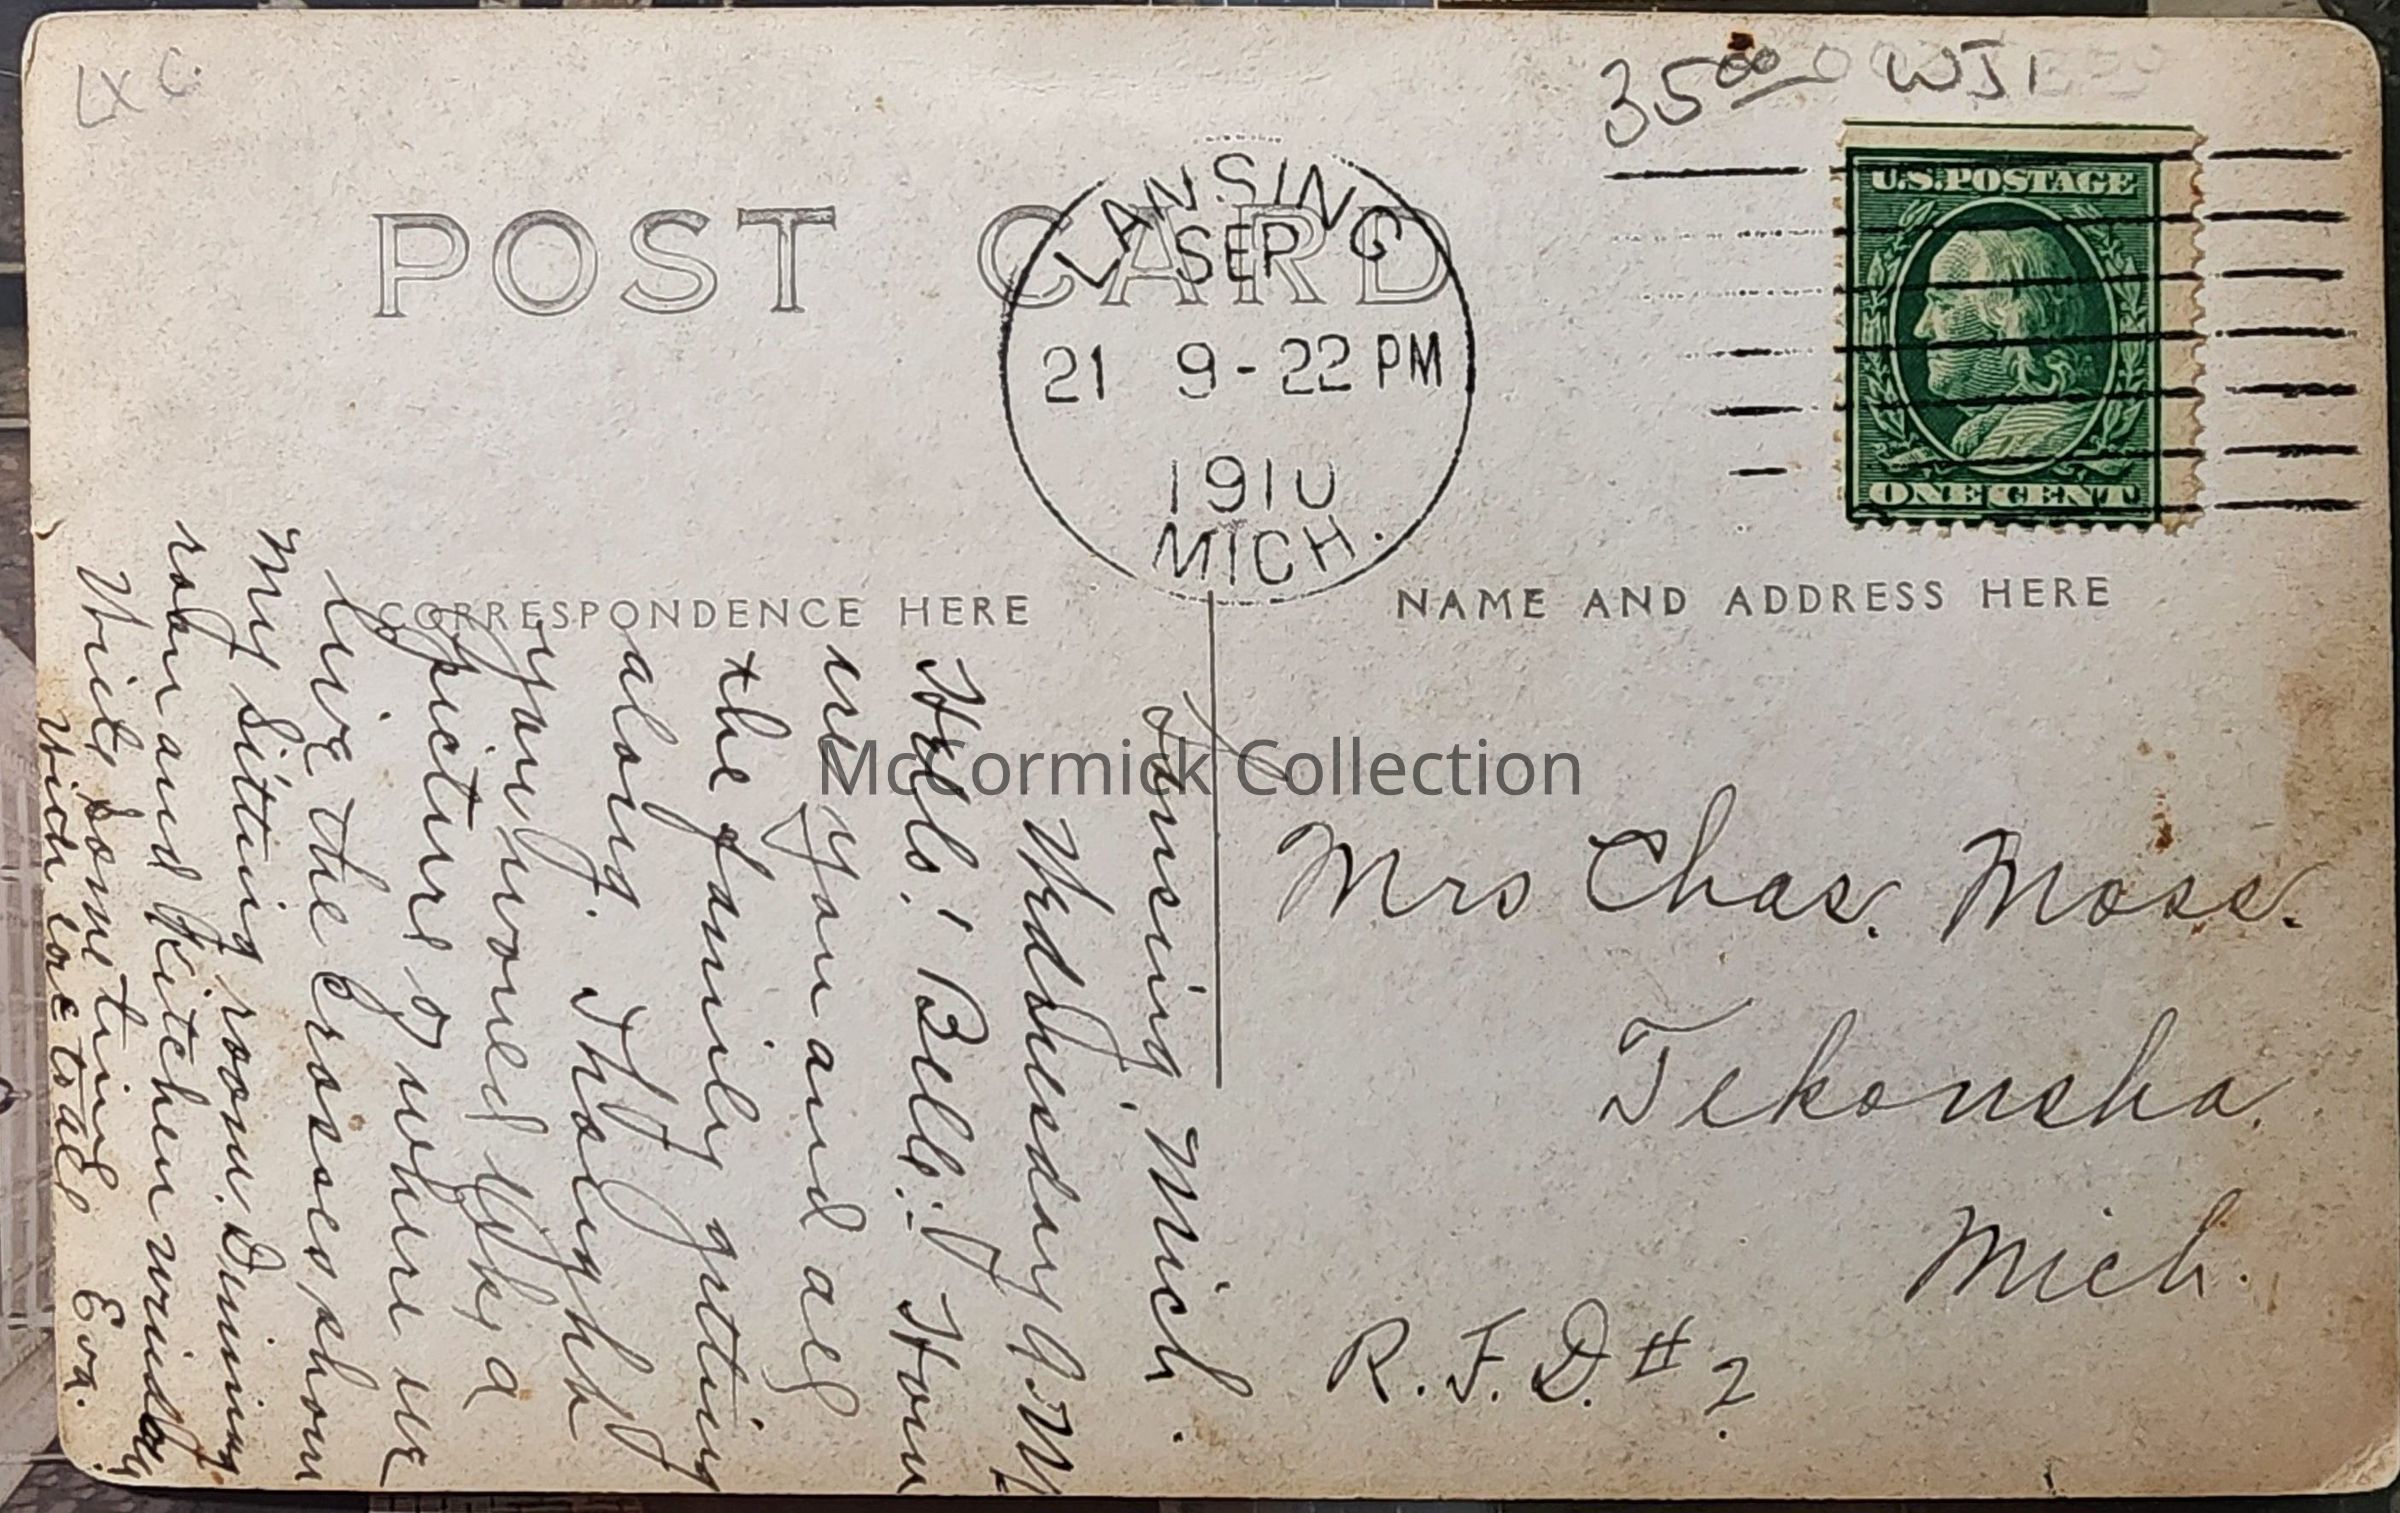 LXC
35⁰⁰ WJI
POST CARD
LANSING
SEP
21 9-22 PM
1910
MICH.
U.S.POSTAGE
ONE CENT
CORRESPONDENCE HERE
NAME AND ADDRESS HERE
Lansing, Mich.
Wednesday P.M.
Hells! Bells! How
are you and all
the family getting
along. I thought
you would like a
picture of where we
live the crosses show
my sitting room. Dinning
room and Kitchen window
Write some time
with love to all Eva.
Mrs Chas. Moss.
Tekonsha.
Mich.
R.F.D. # 2.
McCormick Collection